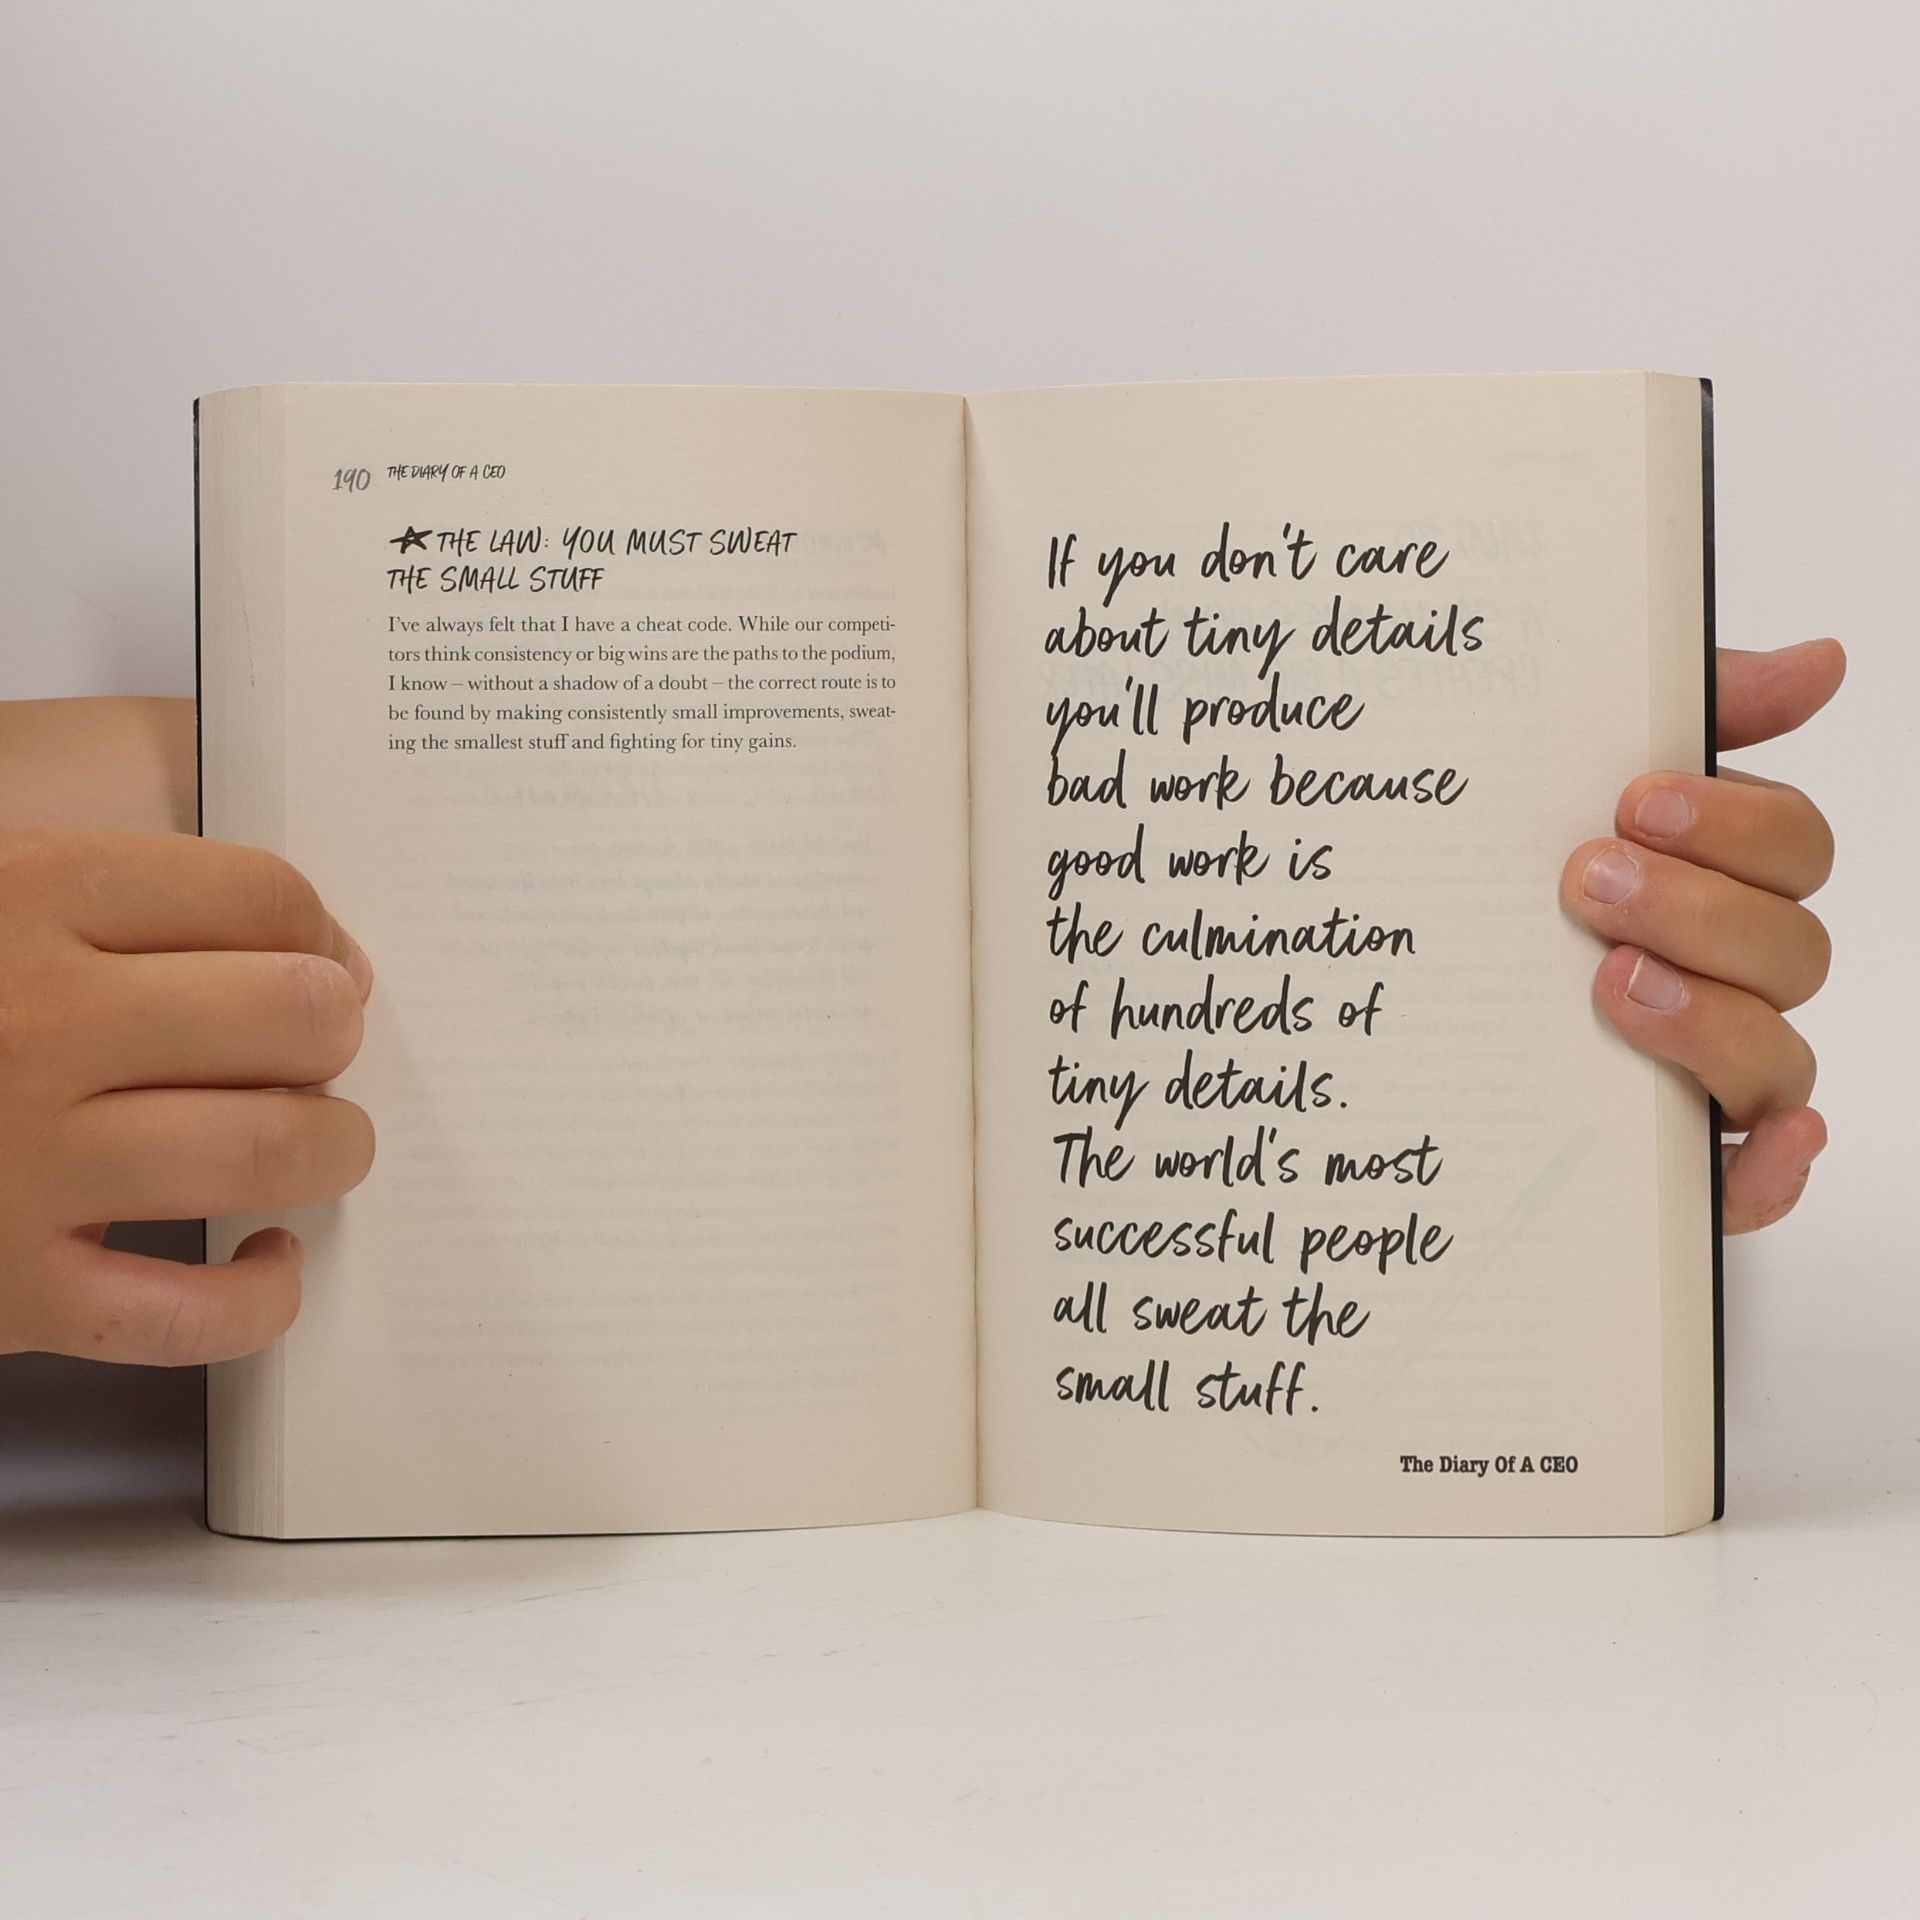 190 THE DIARY OF A CEO
THE LAW: YOU MUST SWEAT
THE SMALL STUFF
I've always felt that I have a cheat code. While our competi-
tors think consistency or big wins are the paths to the podium,
I know – without a shadow of a doubt – the correct route is to
be found by making consistently small improvements, sweat-
ing the smallest stuff and fighting for tiny gains.
If you don't care
about tiny details
you'll produce
bad work because
good work is
the culmination
of hundreds of
tiny details.
The world's most
successful people
all sweat the
small stuff.
The Diary Of A CEO